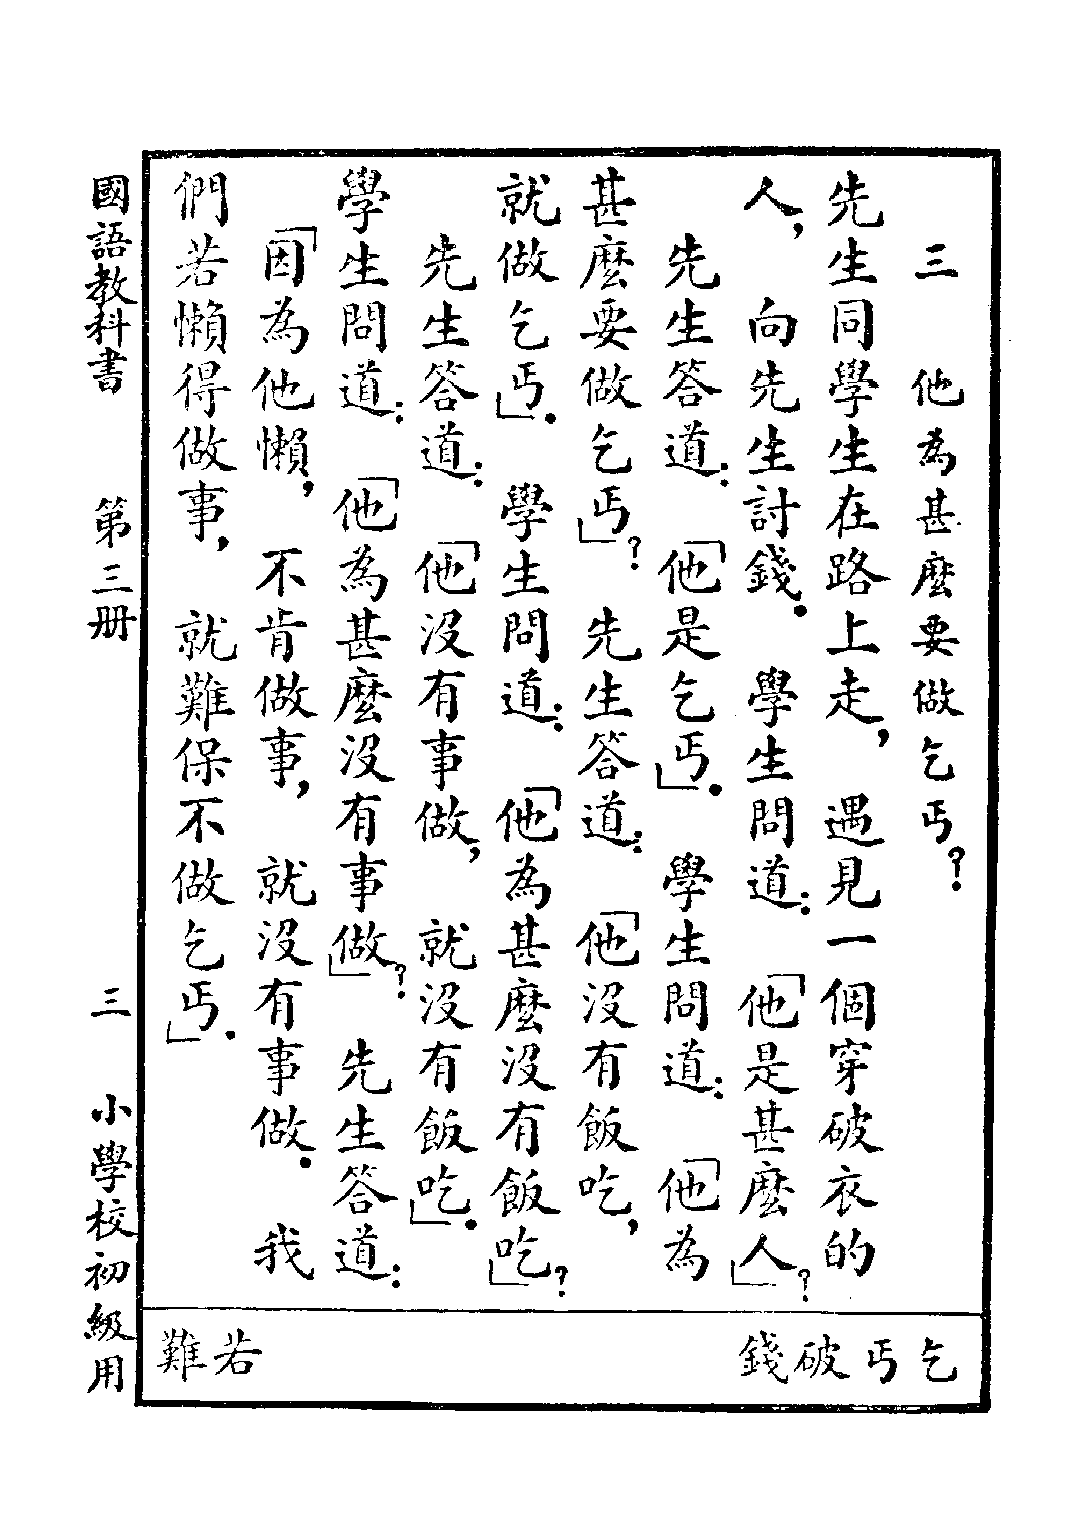 三　他為甚麼要做乞丐？
先生同學生在路上走，遇見一個穿破衣的
人，向先生討錢．學生問道：「他是甚麼人」？
先生答道：「他是乞丐」．學生問道：「他為
甚麼要做乞丐」？先生答道：「他沒有飯吃，
就做乞丐」．學生問道：「他為甚麼沒有飯吃」？
先生答道：「他沒有事做，就沒有飯吃」．
學生問道：「他為甚麼沒有事做」？先生答道：
「因為他懶，不肯做事，就沒有事做．我
們若懶得做事，就難保不做乞丐」．
乞丐破錢
若難
國語教科書　第三册　三　小學校初級用